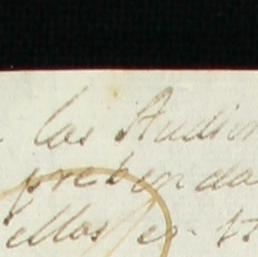 las Audien
prebenda
ellos es